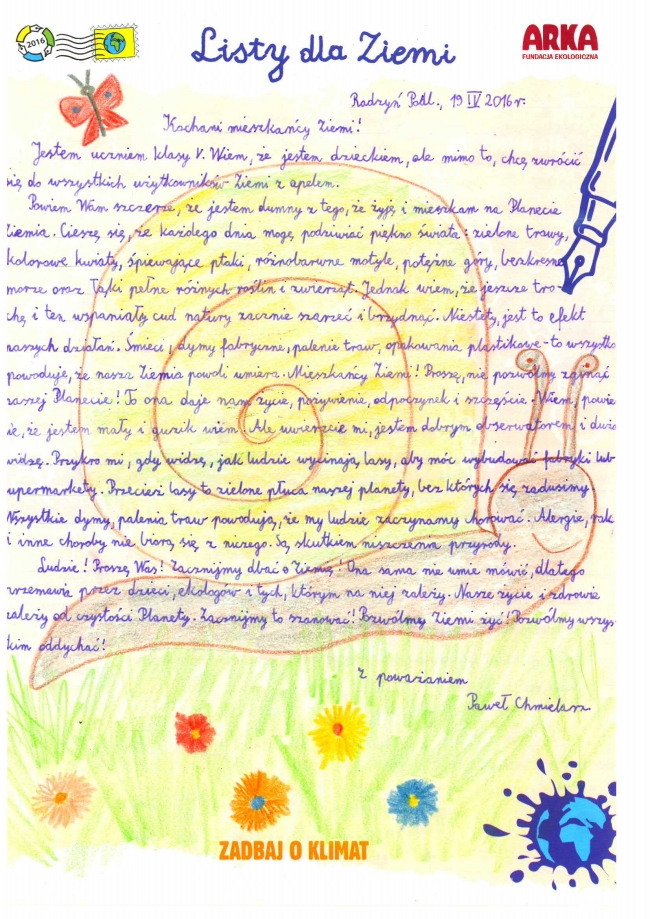 2016
Listy dla Ziemi
ARKA
FUNDACJA EKOLOGICZNA
Radzyń Podl., 19 IV 2016 r.
Kochani mieszkańcy Ziemi!
Jestem uczniem klasy V. Wiem, że jestem dzieckiem, ale mimo to, chcę zwrócić
się do wszystkich użytkowników Ziemi z apelem.
Powiem Wam szczerze, że jestem dumny z tego, że żyję i mieszkam na Planecie
Ziemia. Cieszę się, że każdego dnia mogę podziwiać piękno świata: zielone trawy,
kolorowe kwiaty, śpiewające ptaki, różnobarwne motyle, potężne góry, bezkresne
morze oraz łąki pełne różnych roślin i zwierząt. Jednak wiem, że jeszcze tro-
chę i ten wspaniały cud natury zacznie szarzeć i brzydnąć. Niestety, jest to efekt
naszych działań. Śmieci, dymy fabryczne, palenie traw, opakowania plastikowe - to wszystko
powoduje, że nasza Ziemia powoli umiera. Mieszkańcy Ziemi! Proszę, nie pozwólmy zginąć
naszej Planecie! To ona daje nam życie, pożywienie, odpoczynek i szczęście. Wiem, powie
ie, że jestem mały i guzik wiem. Ale uwierzcie mi, jestem dobrym obserwatorem i dużo
widzę. Przykro mi, gdy widzę, jak ludzie wycinają lasy, aby móc wybudować fabryki lub
upermarkety. Przecież lasy to zielone płuca naszej planety, bez których się zadusimy
Wszystkie dymy, palenia traw powodują, że my ludzie zaczynamy chorować. Alergie, rak
i inne choroby nie biorą się z niczego. Są skutkiem niszczenia przyrody.
Ludzie! Proszę Was! Zacznijmy dbać o Ziemię! Ona sama nie umie mówić, dlatego
przemawia przez dzieci, ekologów i tych, którym na niej zależy. Nasze życie i zdrowie
zależy od czystości Planety. Zacznijmy to szanować! Pozwólmy Ziemi żyć! Pozwólmy wszys
kim oddychać!
Z poważaniem
Paweł Chmielarz
ZADBAJ O KLIMAT